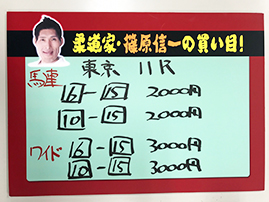 柔道家・篠原信一の買い目!
東京 11R
馬連
16-15 2000円
10-15 2000円
ワイド 16-15 3000円
10-15 3000円